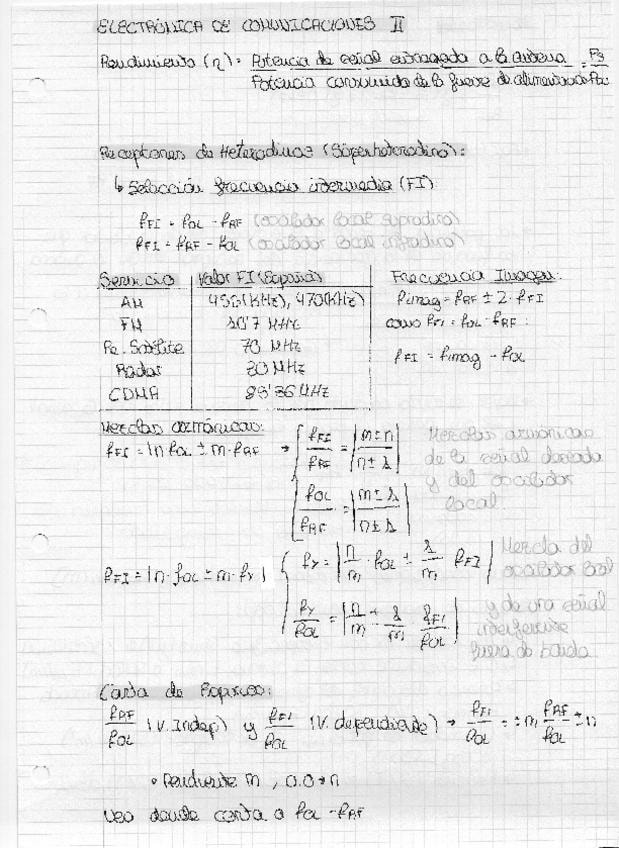 ELECTRÓNICA DE COMUNICACIONES II
Rendimiento (η) = Potencia de señal entregada a la antena / Potencia consumida de la fuente de alimentación
Receptores de Heterodinos (Superheterodino):
↳ Selección frecuencia intermedia (FI)
fFI = fOL - fRF (oscilador local supradino)
fFI = fRF - fOL (oscilador local infradino)
Servicio | Valor FI (España)
AM | (KHz), 470(KHz)
FM | 10'7 MHz
Re. Satélite | 70 MHz
Radar | 30 MHz
CDMA | MHz
Frecuencia Imagen:
fimag = fRF ± 2·fFI
como fFI = fOL - fRF :
fFI = fimag - fOL
Mezclas armónicas:
fFI = |n fOL ± m·fRF → { fFI/fRF = |m ± n / n ± 1|
fOL/fRF = |m ± 1 / n ± 1|
Mezclas armónicas
de la señal deseada
y del oscilador
local.
fFI = |n·fOL ± m·fY| { fY = |n/m · fOL ± 1/m fFI|
fY/fOL = |n/m ± 1/m · fFI/fOL|
Mezcla del
oscilador local
y de una señal
interferente
fuera de banda.
Carta de Espúreos:
fRF/fOL (V. Indep) y fFI/fOL (V. dependiente) → fFI/fOL = ± m fRF/fOL ± n
• Pendiente m , O.O → n
Veo donde corta a fOL - fRF